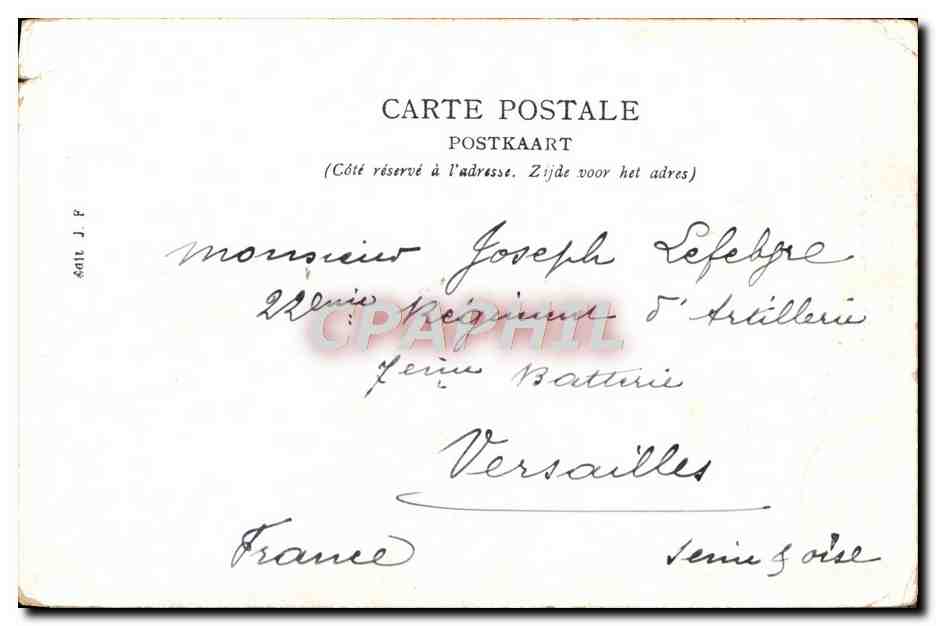 CARTE POSTALE
POSTKAART
(Côté réservé à l'adresse. Zijde voor het adres)
Edit J. F
Monsieur Joseph Lefebvre
22ème Régiment d'Artillerie
CPAPHIL
7eme Batterie
Versailles
France Seine & oise